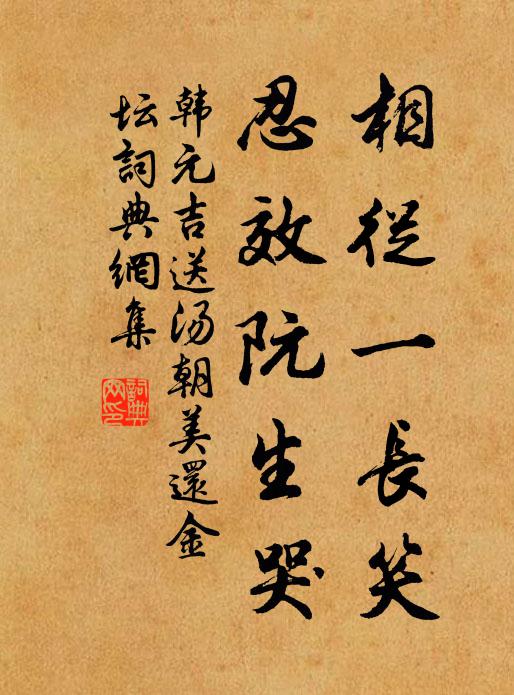 相從一長笑
忍效阮生哭
韩元吉送汤朝美還金
坛詞典網集
詞典
网印